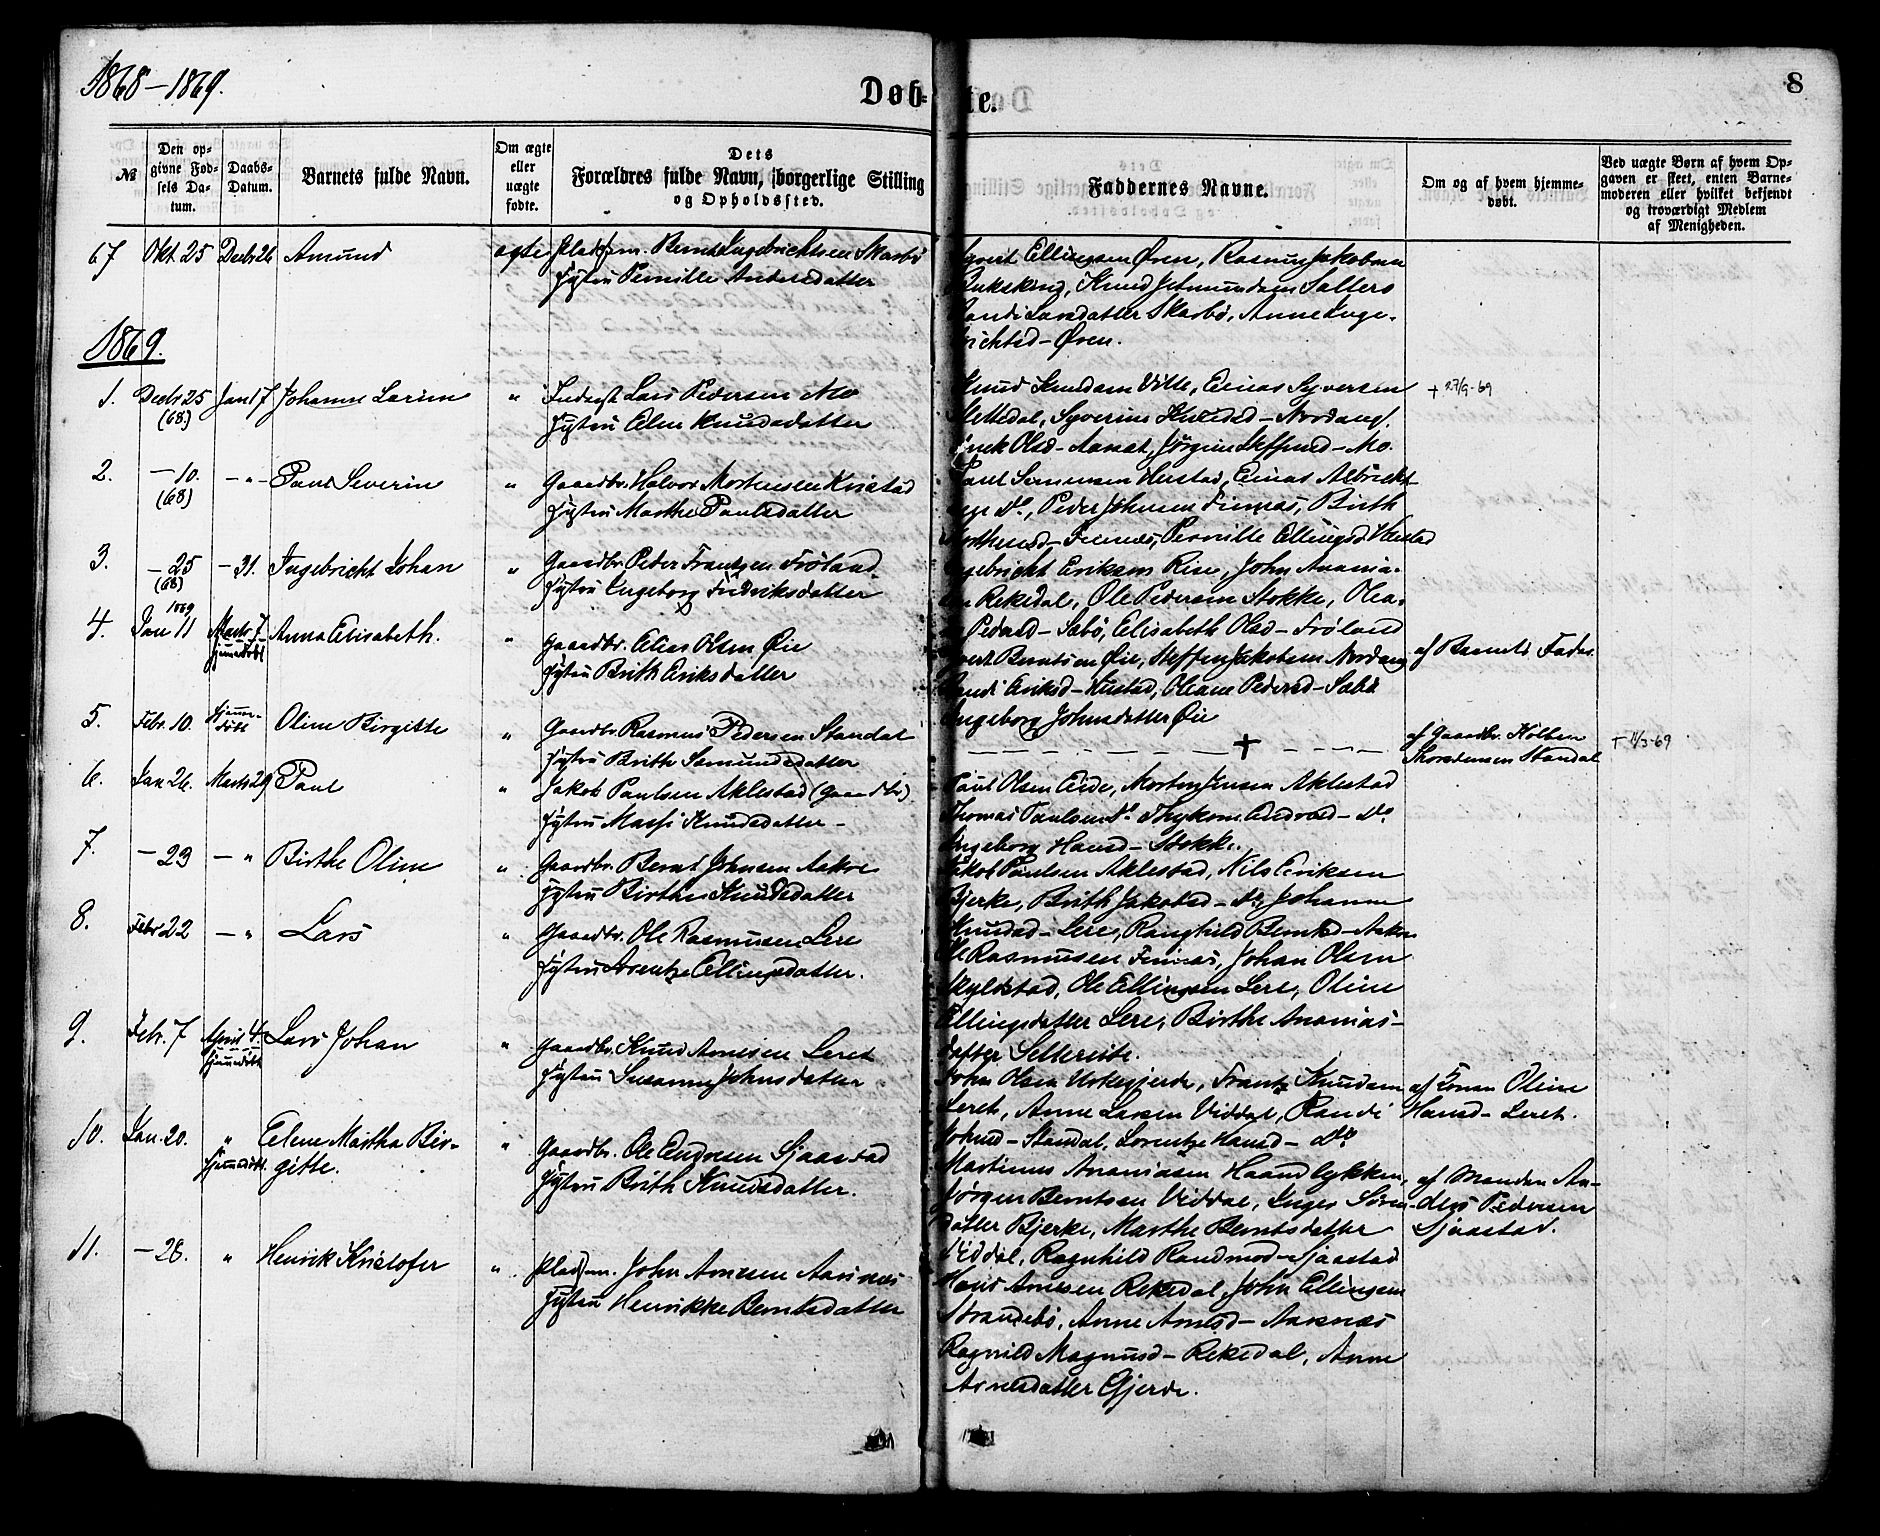 1868-1869.
Døbte.
8
№
Den opgivne Fødsels Datum.
Daabs-Datum.
Barnets fulde Navn.
Om ægte eller uægte fødte.
Dets
Forældres fulde Navn, borgerlige Stilling
og Opholdssted.
Faddernes Navne.
Om og af hvem hjemmedøbt.
Ved uægte Børn af hvem Opgaven er skeet, enten Barnemoderen eller hvilket bekjendt og troværdigt Medlem af Menigheden.
67 Okt 25 Decbr 26 Amund ægte Pladsm. Bernt Ingebrichtsen Skarbø
Hustru Pernille Andersdatter
Syvert Ellingsen Øren, Rasmus Jakobsen
Knud
Larsdatter Skarbø, Anne Inge-
brichtsd- Øren.
1869.
1. Decbr 25 (68.) Jan 17 Johanne Larine " Inderst Lars Pedersen Mo
Hustru Elen Knudsdatter
Knud Knudsen Vitte, Elias Syversen
Slettedal, Syverine Knudsd- Nordang,
Olsd- Aarsæt, Jørgine Steffensd- Mo.
+ 27/9-69
2. - 10. (68) - " - Paul Severin " Gaardbr. Halvor Mortensen Kvistad
Hustru Marthe Paulsdatter
Paul Hustad, Elias Albricht-
do, Peder Johnsen Finnæs, Brith
Finnæs, Pernille Ellingsd Hustad
3. - 25 (68) - 31. Ingebricht Johan " Gaardbr. Peder Frantzen Frøland
Hustru Ingeborg Fredriksdatter
Ingebricht Eriksen Rise, John Anania-
sen Rekkedal, Ole Pedersen Stokke, Olea-
Pedersd- Sæbø, Elisabeth Olsd- Frøland
4. 1869 Jan 11 Marts 7 hjemmedøbt Anna Elisabeth. " Gaardbr. Elias Olsen Øie
Hustru Brith Eriksdatter
Berntsen Øie, Steffen Jakobsen Nordang
Randi Eriksd- Hustad, Oliane Pedersd- Sæbø
Ingeborg Johnsdatter Øie
af Barnets Fader
5. Febr. 10. Hjemmedøbt Oline Birgitte " Gaardbr. Rasmus Pedersen Standal
Hustru Brithe Semundsdatter
- - - + - - -
af Gaardbr. Kolben
Thorstensen Standal
+ 11/3-69
6. Jan 26. Marts 29 Paul " Jakob Paulsen Aklestad (Gaardbr)
Hustru Massi Knudsdatter -
Paul Olsen Eide, Morten Jensen Aklestad
Thomas Paulsen do - do
Ingeborg Hansd- Stokke.
7. - 23 - " Birthe Oline " Gaardbr. Bernt Johnsen Aakre
Hustru Birthe Knudsdatter
Jakob Paulsen Aklestad, Nils Eriksen
Bjerke, Brith Jakobsd- do Johanne
Knudsd- Lere, Ranghild Berntsd- Aakre
8. Febr 22 - " Lars " Gaardbr. Ole Rasmussen Lere
Hustru Lorentze Ellingsdatter.
Ole Rasmussen Finnæs, Johan Olsen
Skylstad, Ole Ellingsen Lere, Oline
Ellingsdatter Lere, Birthe Ananias-
datter
9. Feb. 7 April 4. hjemmedøbt Lars Johan " Gaardbr. Knud Arnesen Leret
Hustru Susanne Johnsdatter
John Olsen Urkegjerde, Frantz Knudsen
Leret, Anne Larsen Viddal, Randi
Johnsd- Standal, Lorentze Hansd- do
af Konen Oline
Hansd- Leret.
10. Jan. 20. " hjemmedøbt Elene Martha Bir-
gitte. " Gaardbr. Ole Endresen Sjaastad
Hustru Brith Knudsdatter.
Martinus Ananiasen Haandlykken,
Jørgen Berntsen Viddal, Inger Søren-
datter Bjerke, Marthe Berntsdatter
Viddal, Ragnhild Sjaastad
af Manden An-
ders Pedersen
Sjaastad.
11. - 28. " Henrik Kristofer " Pladsm. John Arnesen Aarsnæs
Hustru Henrikke Berntsdatter
Hans Arnesen Rekkedal, John Ellingsen
Strandebø, Anne Arnesd- Aarsnæs
Ragnild Magnusd- Rekkedal, Anne
Arnesdatter Gjerde.